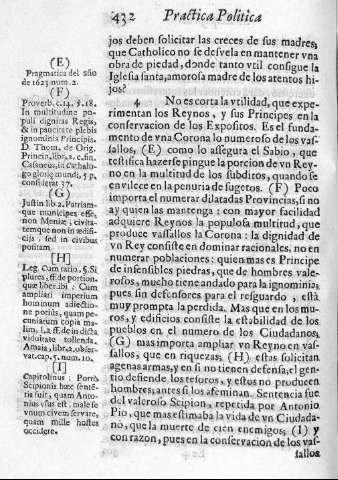 432 Practica Politica
jos deben solicitar las creces de sus madres,
que Catholico no se desvela en mantener vna
obra de piedad, donde tanto vtil consigue la
Iglesia santa, amorosa madre de los atentos hi-
jos?
4 No es corta la vtilidad, que experi-
mentan los Reynos, y sus Principes en la
conservacion de los Expositos. Es el funda-
mento de vna Corona lo numeroso de los vas-
sallos, (E) como lo assegura el Sabio, que
testifica hazerse pingue la porcion de vn Rey-
no en la multitud de los subditos, quando se
envilece en la penuria de sugetos. (F) Poco
importa el numerar dilatadas Provincias, si no
ay quien las mantenga: con mayor facilidad
adquiere Reynos la populosa multitud, que
produce vassallos la Corona: la dignidad de
vn Rey consiste en dominar racionales, no en
numerar poblaciones: quien mas es Principe
de insensibles piedras, que de hombres vale-
rosos, mucho tiene andado para la ignominia;
pues sin defensores para el resguardo, està
muy prompta la perdida. Mas que en los mu-
ros, y edificios consiste la estabilidad de los
pueblos en el numero de los Ciudadanos,
(G) mas importa ampliar vn Reyno en vas-
sallos, que en riquezas; (H) estas solicitan
agenas armas, y en si no tienen defensa, el gen-
tio defiende los tesoros, y estos no producen
hombres, antes si los afeminan. Sentencia fue
del valeroso Scipion, repetida por Antonio
Pio, que mas estimaba la vida de vn Ciudada-
no, que la muerte de cien enemigos; (I) y
con razon, pues en la conservacion de los vas-
sallos
(E)
Pragmatica del año
de 1623. num. 2.
(F)
Proverb. c. 14. ℣. 18.
In multitudine po-
puli dignitas Regis,
& in paucitate plebis
ignominia Principis.
D. Thom. de Orig.
Princip. lib. 2. c. fin.
Casaneus, in Catholo-
go glorię mundi, 5 p.
considerat 37.
(G)
Justin lib 2. Patriam-
que municipes esse,
non Mœnia, civita-
temque non in ædifi-
cijs, sed in civibus
positam.
[H]
Leg. Cum ratio, §. Si
plures, ff. de portion-
que liber. ibi: Cum
ampliari imperium
hominum adiectio-
ne potius, quam pe-
cuniarum copia ma-
lim,
viduitate tollenda,
Amaia, lib. 2. obser-
vat. cap. 5. num. 10.
[I]
Capitolinus. Porrò
Scipionis hæc senten-
tia fuit, quam Anto-
nius vsus est, male se
vnum civem servare,
quam mille hostes
occidere.